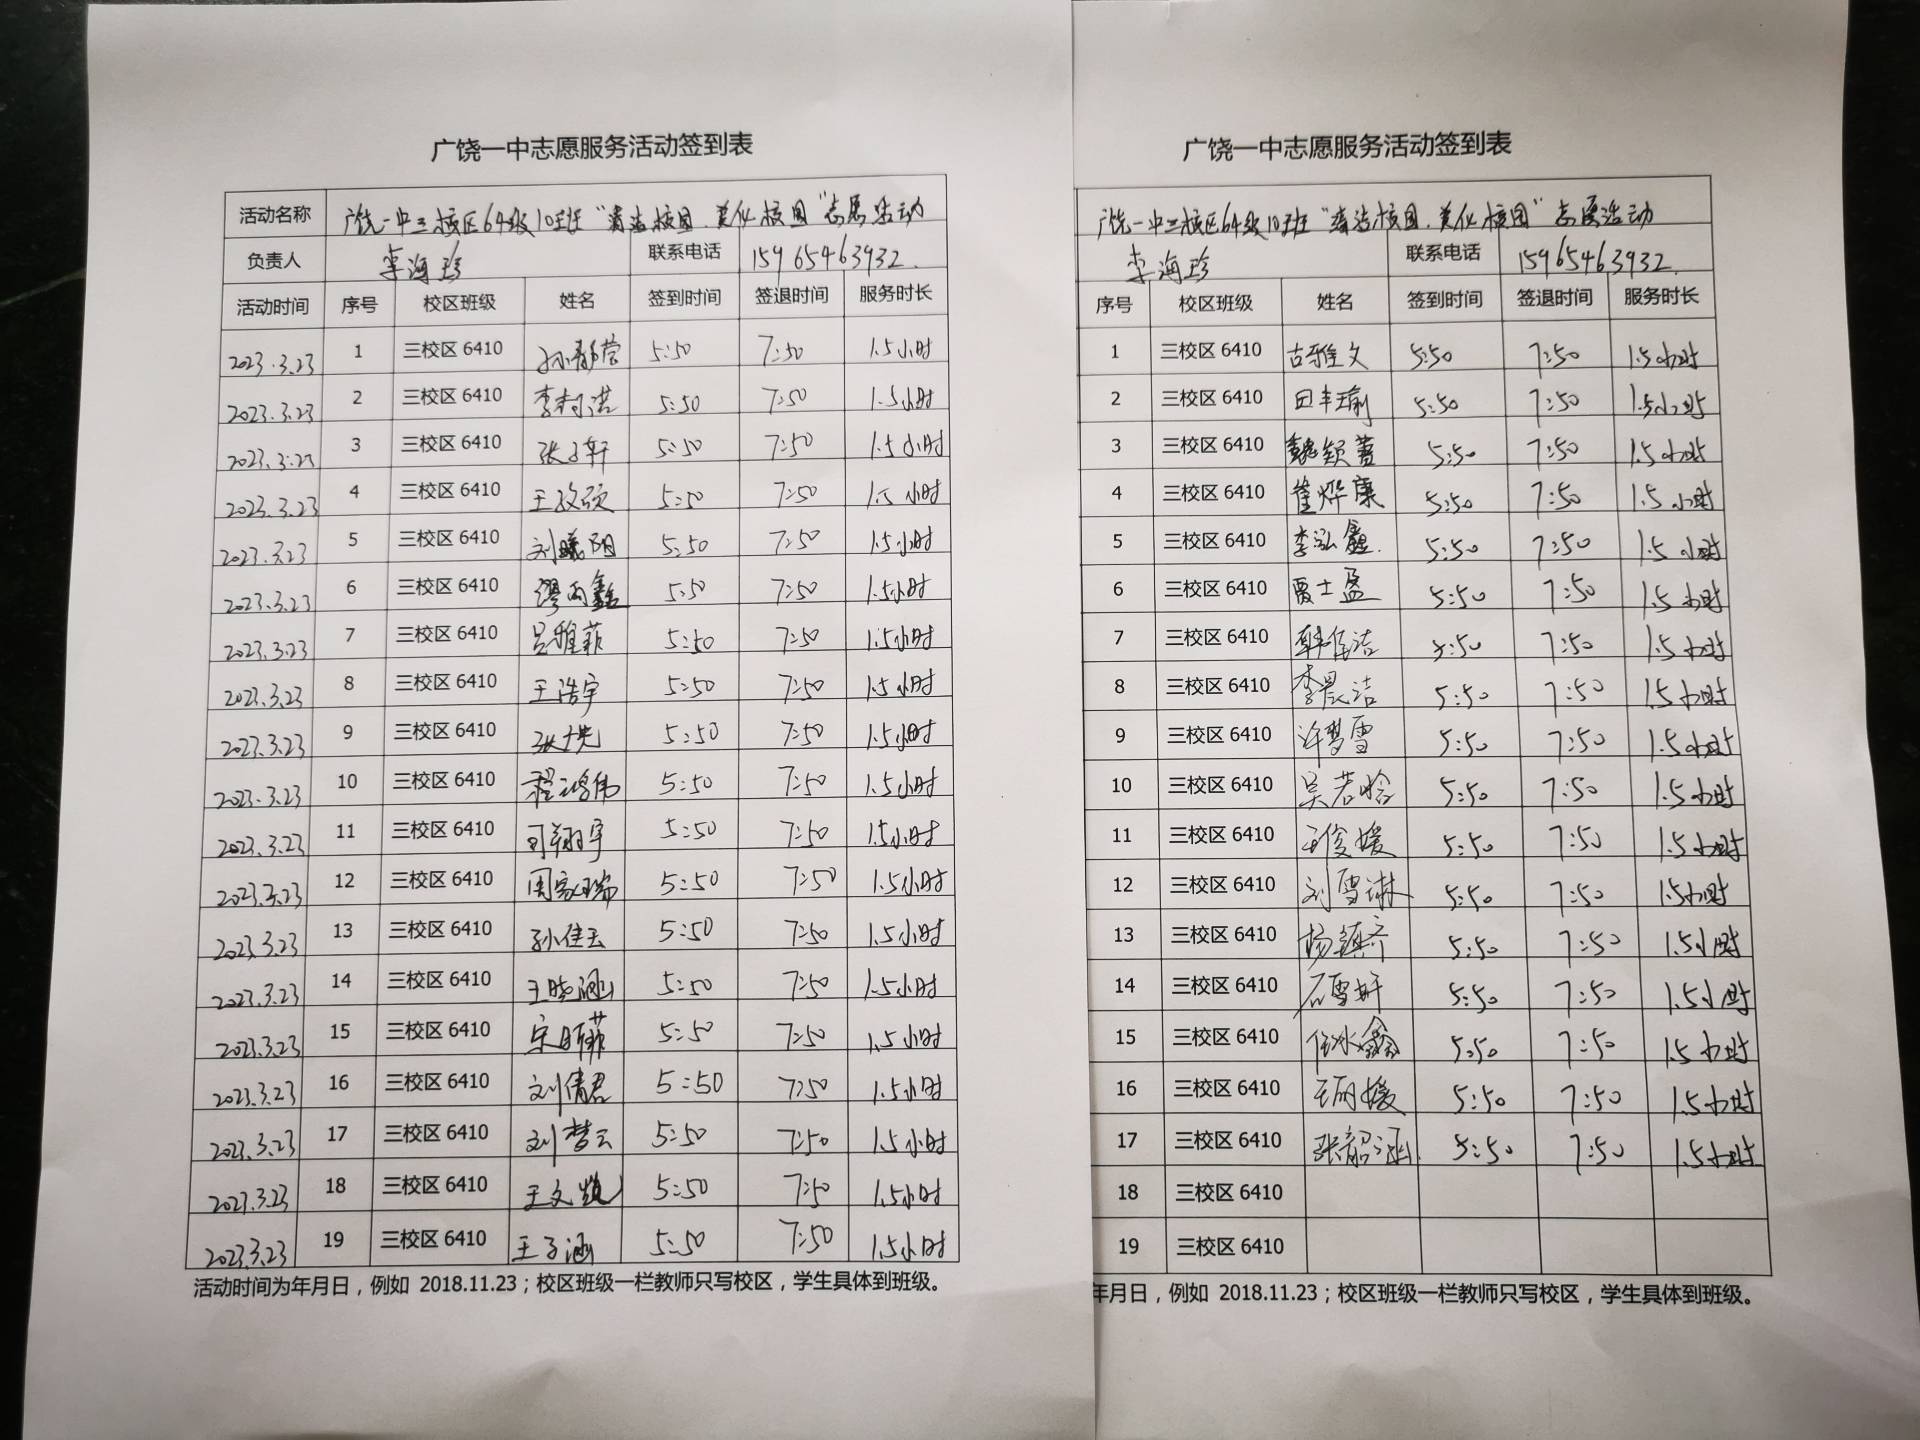 广饶一中志愿服务活动签到表
活动名称 广饶一中三校区64级10班“清洁校园、美化校园”志愿活动
负责人 李海珍 联系电话 15965463932
活动时间 序号 校区班级 姓名 签到时间 签退时间 服务时长
2023.3.23 1 三校区 6410 5:50 7:50 1.5小时
2023.3.23 2 三校区 6410 5:50 7:50 1.5小时
2023.3.23 3 三校区 6410 张子轩 5:50 7:50 1.5小时
2023.3.23 4 三校区 6410 5:50 7:50 1.5小时
2023.3.23 5 三校区 6410 刘曦阳 5:50 7:50 1.5小时
2023.3.23 6 三校区 6410 5:50 7:50 1.5小时
2023.3.23 7 三校区 6410 吕雅菲 5:50 7:50 1.5小时
2023.3.23 8 三校区 6410 王浩宇 5:50 7:50 1.5小时
2023.3.23 9 三校区 6410 5:50 7:50 1.5小时
2023.3.23 10 三校区 6410 程鸿伟 5:50 7:50 1.5小时
2023.3.23 11 三校区 6410 5:50 7:50 1.5小时
2023.3.23 12 三校区 6410 周家瑞 5:50 7:50 1.5小时
2023.3.23 13 三校区 6410 孙佳云 5:50 7:50 1.5小时
2023.3.23 14 三校区 6410 王晓涵 5:50 7:50 1.5小时
2023.3.23 15 三校区 6410 5:50 7:50 1.5小时
2023.3.23 16 三校区 6410 刘倩君 5:50 7:50 1.5小时
2023.3.23 17 三校区 6410 刘梦云 5:50 7:50 1.5小时
2023.3.23 18 三校区 6410 5:50 7:50 1.5小时
2023.3.23 19 三校区 6410 王子涵 5:50 7:50 1.5小时
活动时间为年月日，例如 2018.11.23；校区班级一栏教师只写校区，学生具体到班级。
广饶一中志愿服务活动签到表
广饶一中三校区64级10班“清洁校园、美化校园”志愿活动
李海珍 联系电话 15965463932
序号 校区班级 姓名 签到时间 签退时间 服务时长
1 三校区 6410 古雅文 5:50 7:50 1.5小时
2 三校区 6410 田丰瑜 5:50 7:50 1.5小时
3 三校区 6410 5:50 7:50 1.5小时
4 三校区 6410 崔烨康 5:50 7:50 1.5小时
5 三校区 6410 李泓鑫 5:50 7:50 1.5小时
6 三校区 6410 贾士盈 5:50 7:50 1.5小时
7 三校区 6410 5:50 7:50 1.5小时
8 三校区 6410 李晨洁 5:50 7:50 1.5小时
9 三校区 6410 许梦雪 5:50 7:50 1.5小时
10 三校区 6410 吴若晗 5:50 7:50 1.5小时
11 三校区 6410 王俊媛 5:50 7:50 1.5小时
12 三校区 6410 刘雪琳 5:50 7:50 1.5小时
13 三校区 6410 杨镇齐 5:50 7:50 1.5小时
14 三校区 6410 石雪妍 5:50 7:50 1.5小时
15 三校区 6410 任冰鑫 5:50 7:50 1.5小时
16 三校区 6410 王丽媛 5:50 7:50 1.5小时
17 三校区 6410 张韶涵 5:50 7:50 1.5小时
18 三校区 6410
19 三校区 6410
年月日，例如 2018.11.23；校区班级一栏教师只写校区，学生具体到班级。